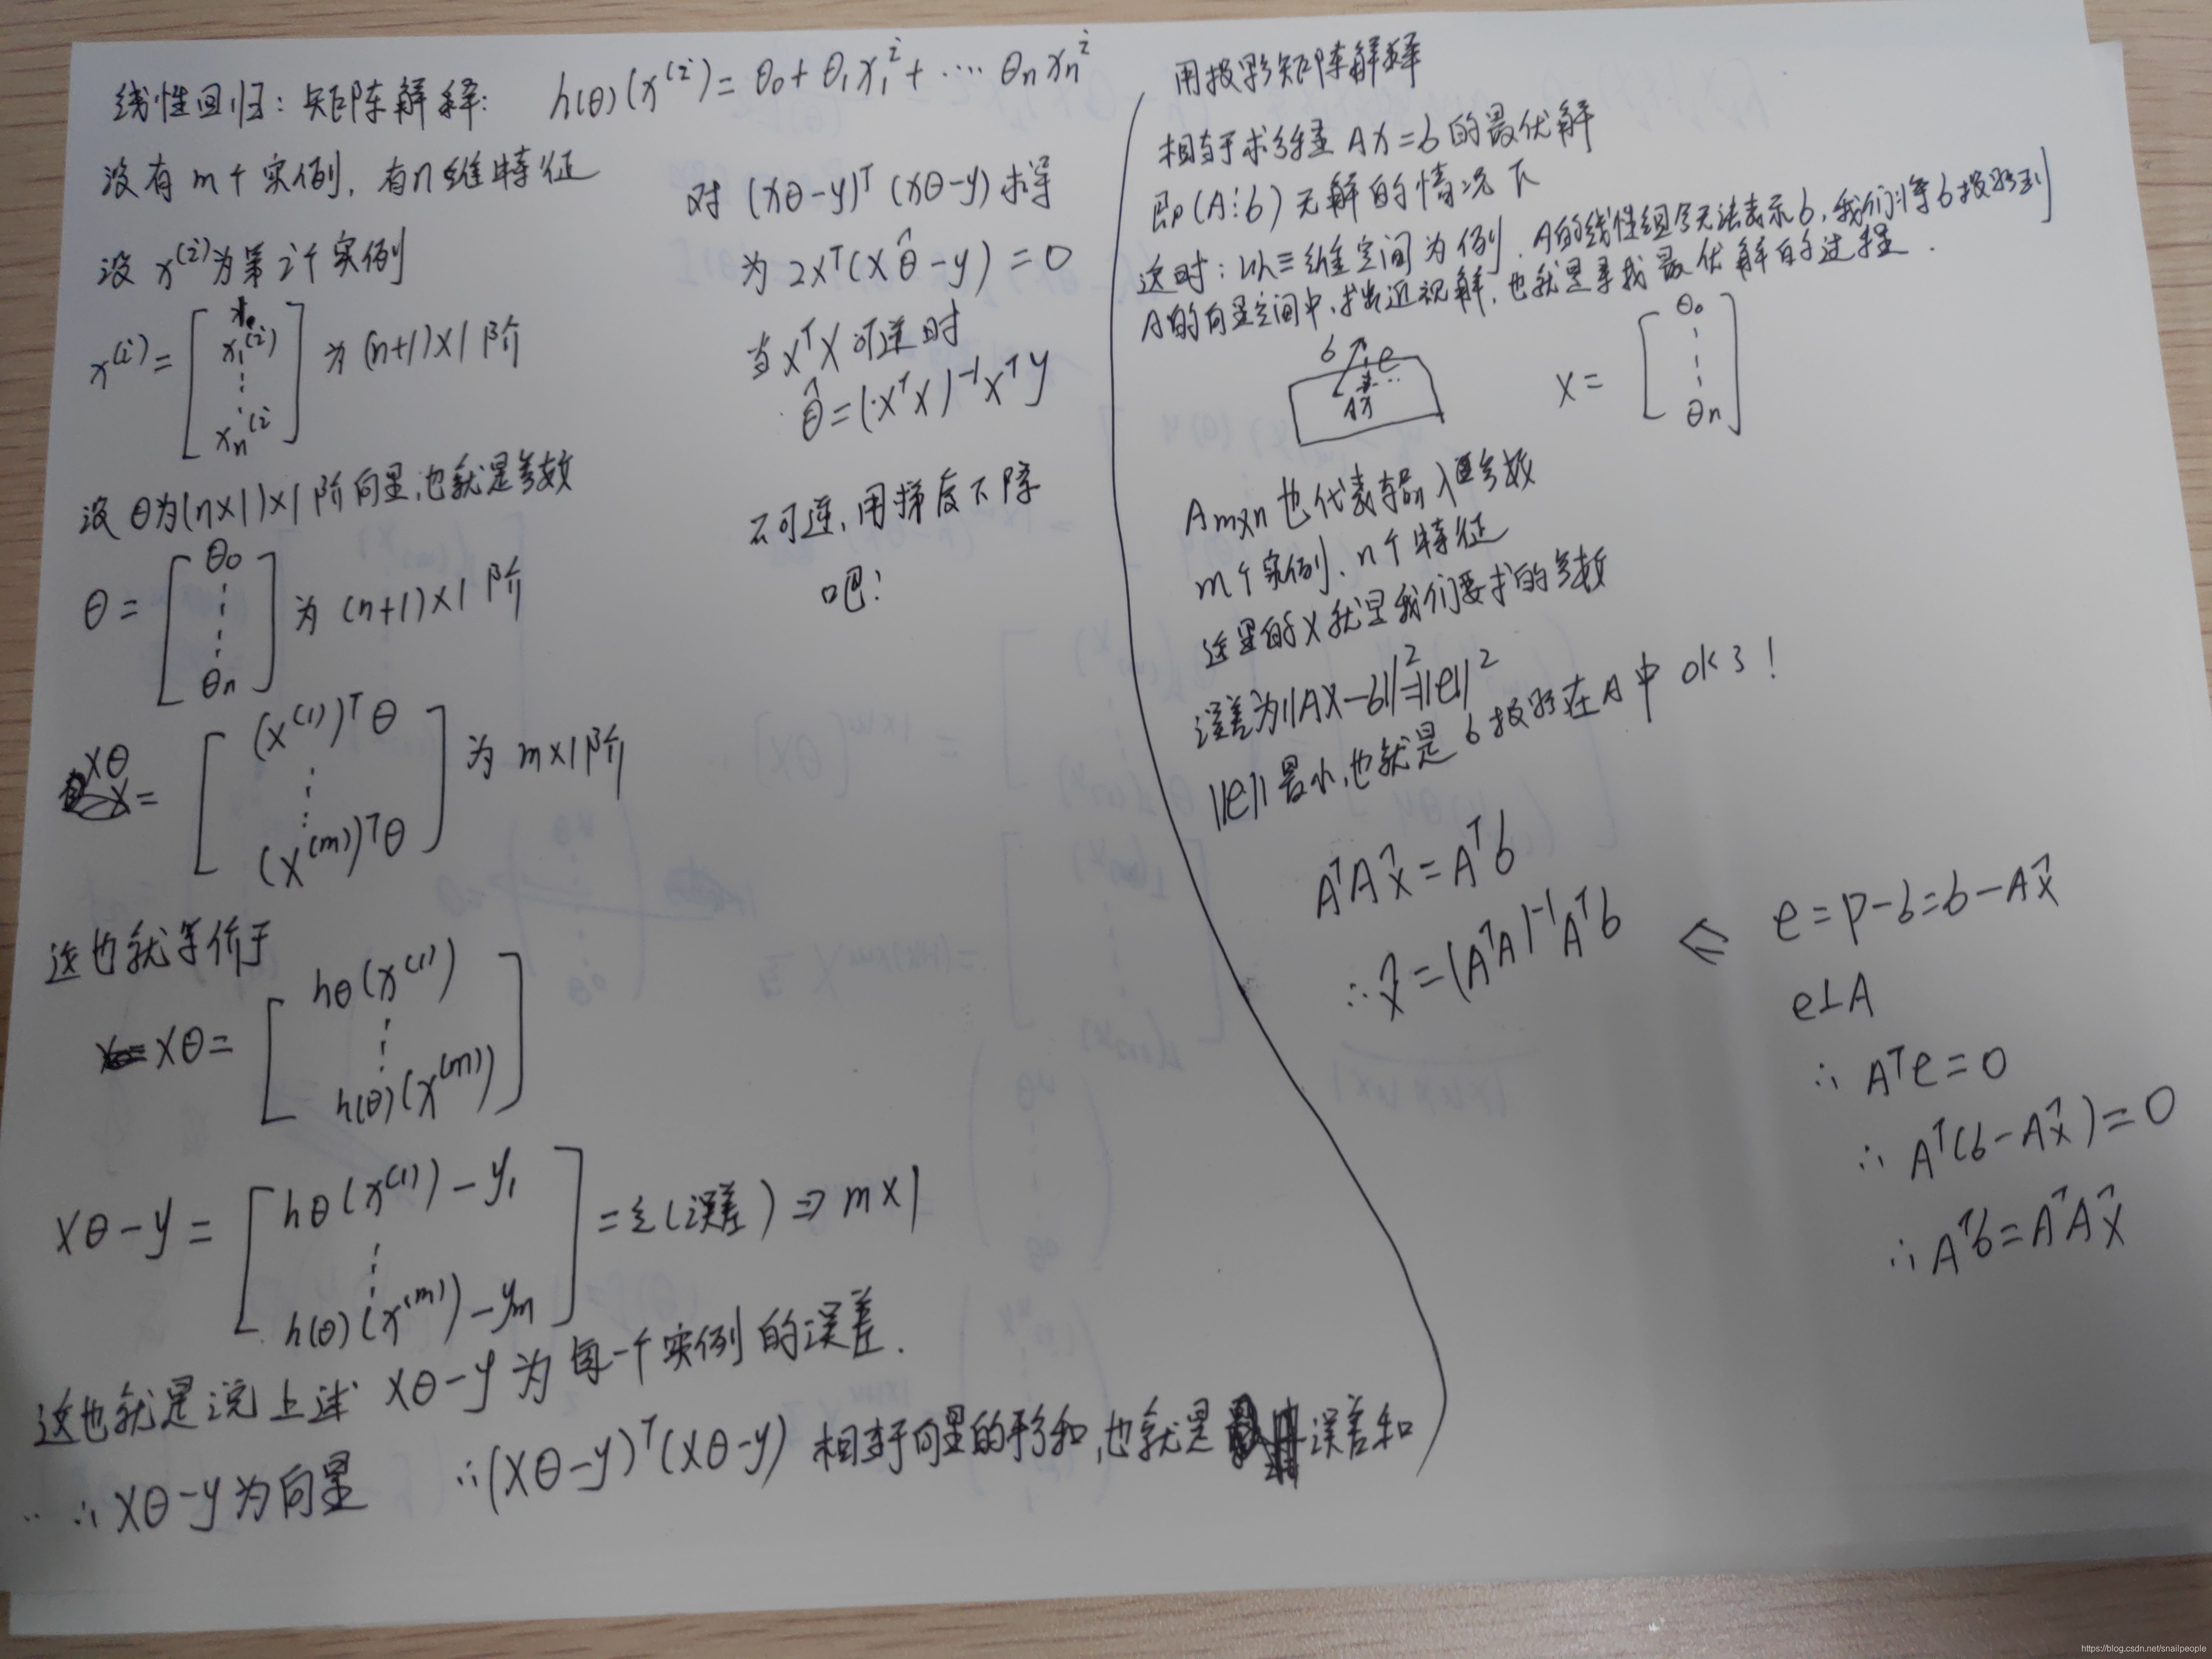 线性回归：矩阵解释： h(θ)(x^(i)) = θ0 + θ1x1^i + ···· θn xn^i
设有m个实例，有n维特征
设 x^(i)为第i个实例
x^(i) = [x0 x1^(i) ⋮ xn^(i] 为 (n+1)×1 阶
设 θ为(n×1)×1阶向量，也就是参数
θ = [θ0 ⋮ θn] 为 (n+1)×1 阶
Xθ = [(x^(1))^T θ ⋮ (x^(m))^T θ] 为 m×1阶
这也就等价于
Xθ = [hθ(x^(1)) ⋮ h(θ)(x^(m))]
Xθ-y = [hθ(x^(1)) - y1 ⋮ h(θ)(x^(m)) - ym] = ξ(误差) ⇒ m×1
这也就是说上述 Xθ-y 为 每一个实例的误差.
∴ Xθ-y为向量 ∴(Xθ-y)^T(Xθ-y) 相当于向量的形和，也就是误差和
对 (Xθ-y)^T (Xθ-y) 求导
为 2X^T(Xθ̂-y) = 0
当 X^T X 可逆时
θ̂ = (X^T X)^-1 X^T y
不可逆，用梯度下降
吧！
用投影矩阵解释
相当于求解 Ax=b 的最优解
即(A⋮b) 无解的情况下
这时：以三维空间为例，A的线性组合无法表示b，我们将b投影到
A的向量空间中，求出近视解，也就是寻找最优解的过程.
b e
x = [θ0 ⋮ θn]
Am×n 也代表输入参数
m个实例，n个特征
这里的x就是我们要求的参数
误差为||Ax-b||^2=||e||^2
||e||最小，也就是 b投影在A中 OK了！
A^T A x̂ = A^T b
∴ x̂ = (A^T A)^-1 A^T b ⇐ e = p-b = b-Ax̂
e⊥A
∴ A^T e = 0
∴ A^T(b-Ax̂) = 0
∴ A^T b = A^T A x̂
https://blog.csdn.net/snailpeople